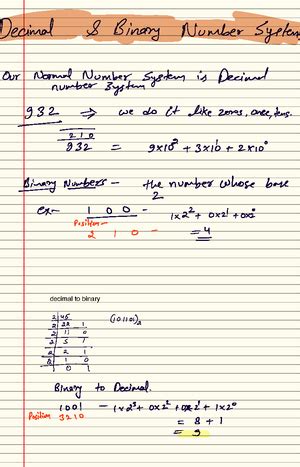 Decimal & Binary Number System
Our Normal Number System is Decimal
number System
932 ⇒ we do it like zeros, ones, tens.
2 1 0
932 = 9×10² + 3×10¹ + 2×10⁰
Binary Numbers - the number whose base
2
ex- 1 0 0 - 1×2² + 0×2¹ + 0×2⁰
Position - 2 1 0 - = 4
decimal to binary
2 45 (101101)₂
2 22 1
2 11 0
2 5 1
2 2 1
2 1 0
1 0 1
Binary to Decimal.
1001 - 1×2³ + 0×2² + 0×2¹ + 1×2⁰
Position 3210 = 8 + 1
= 9